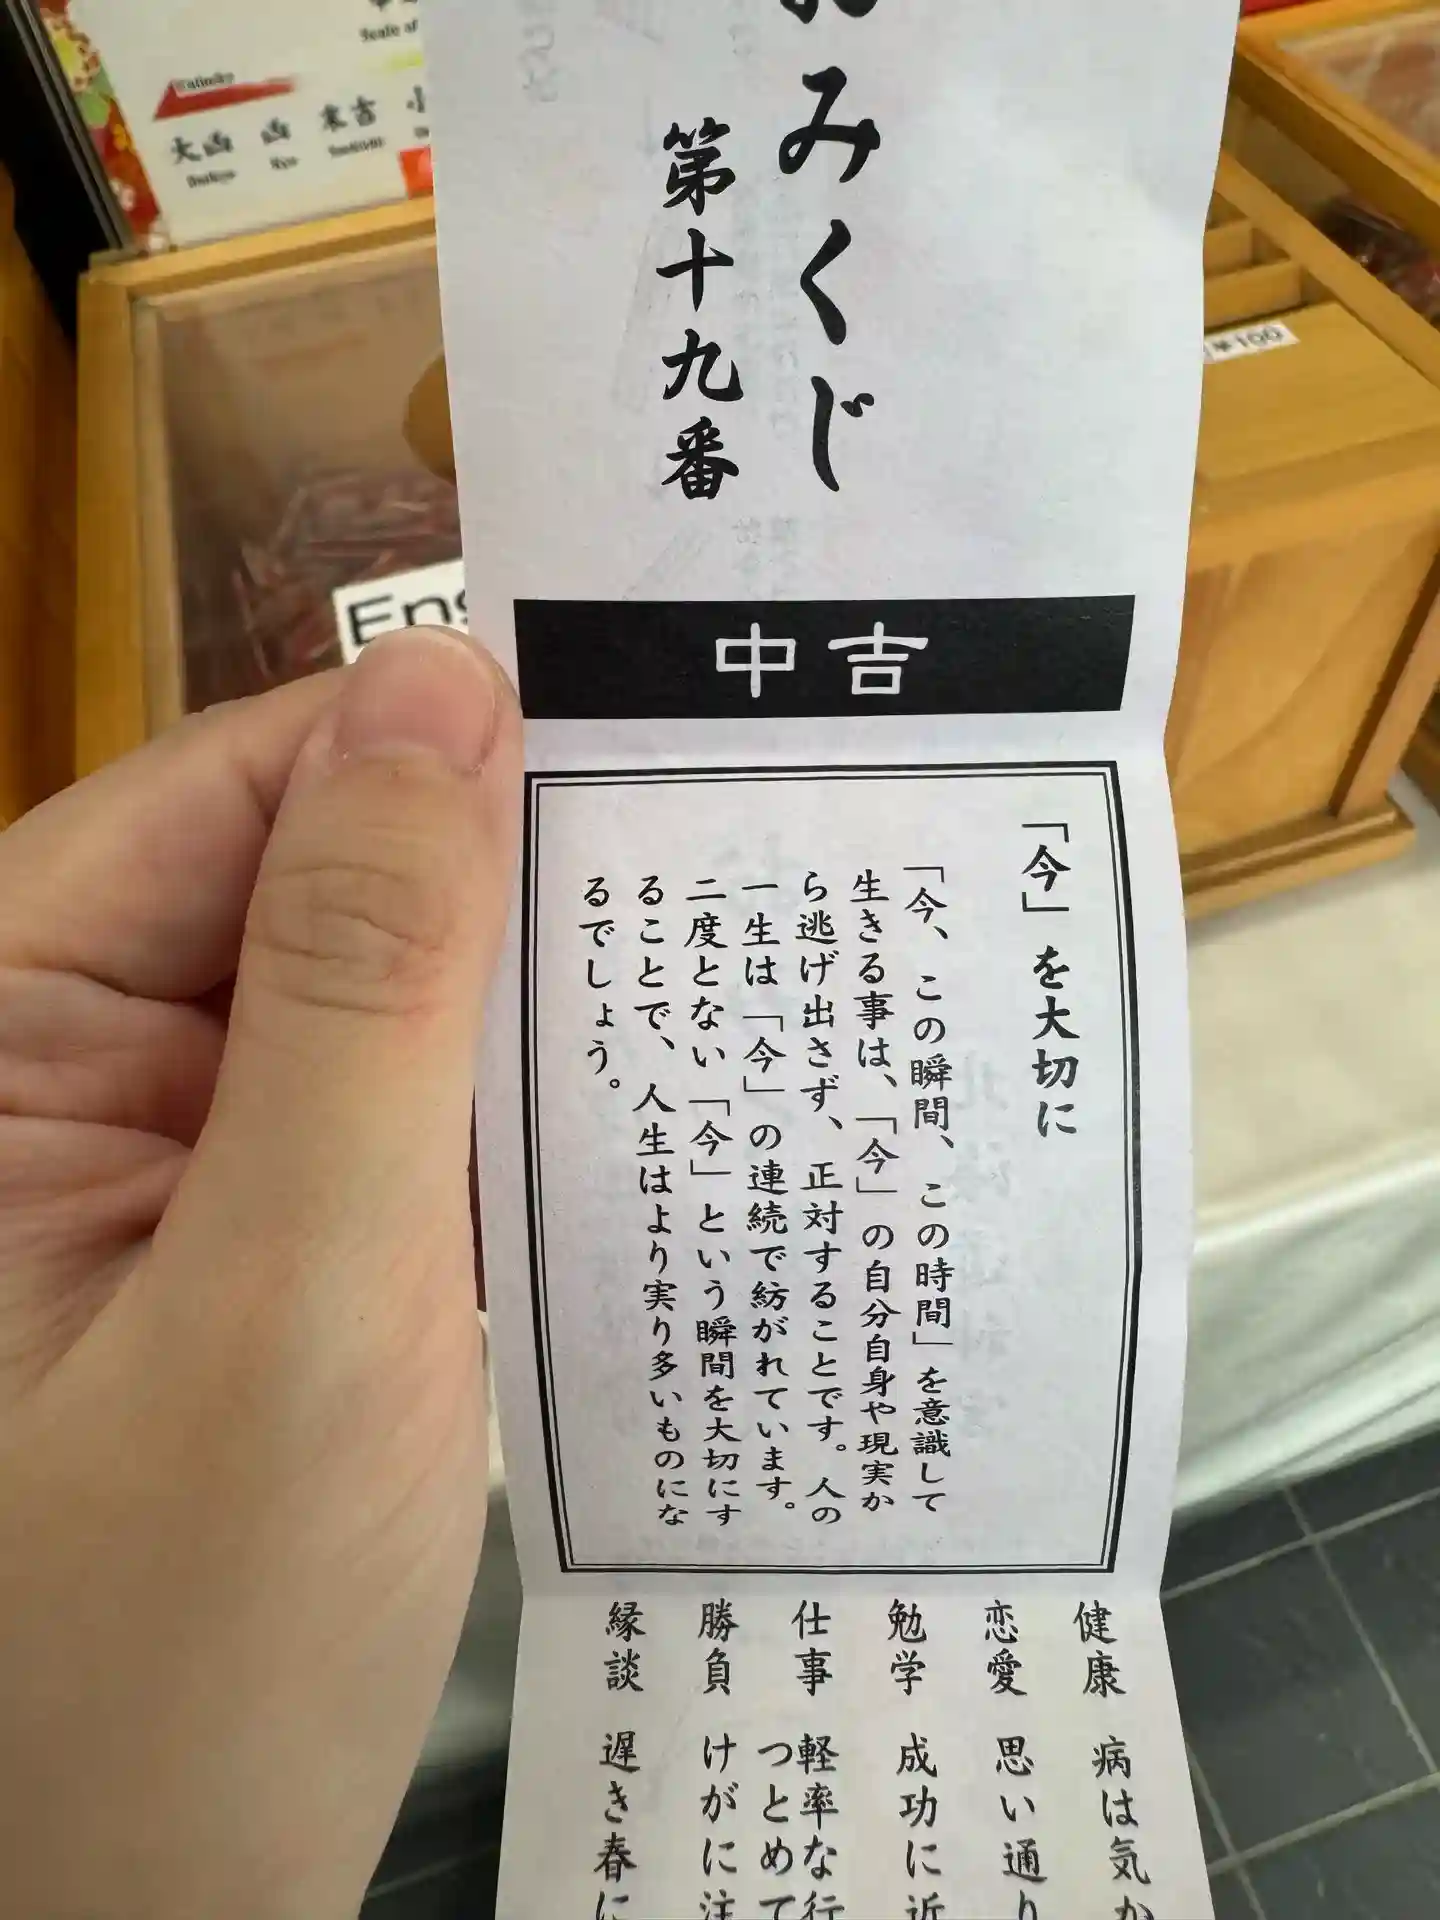 おみくじ
第十九番
中吉
「今」を大切に
「今、この瞬間、この時間」を意識して
生きる事は、「今」の自分自身や現実か
ら逃げ出さず、正対することです。人の
一生は「今」の連続で紡がれています。
二度とない「今」という瞬間を大切にす
ることで、人生はより実り多いものにな
るでしょう。
健康 病は気か
恋愛 思い通り
勉学 成功に近
仕事 軽率な行
つとめて
勝負 けがに注
縁談 遅き春に
Scale of
大凶 凶 末吉 小
Daikyo Kyo
Eng
¥100